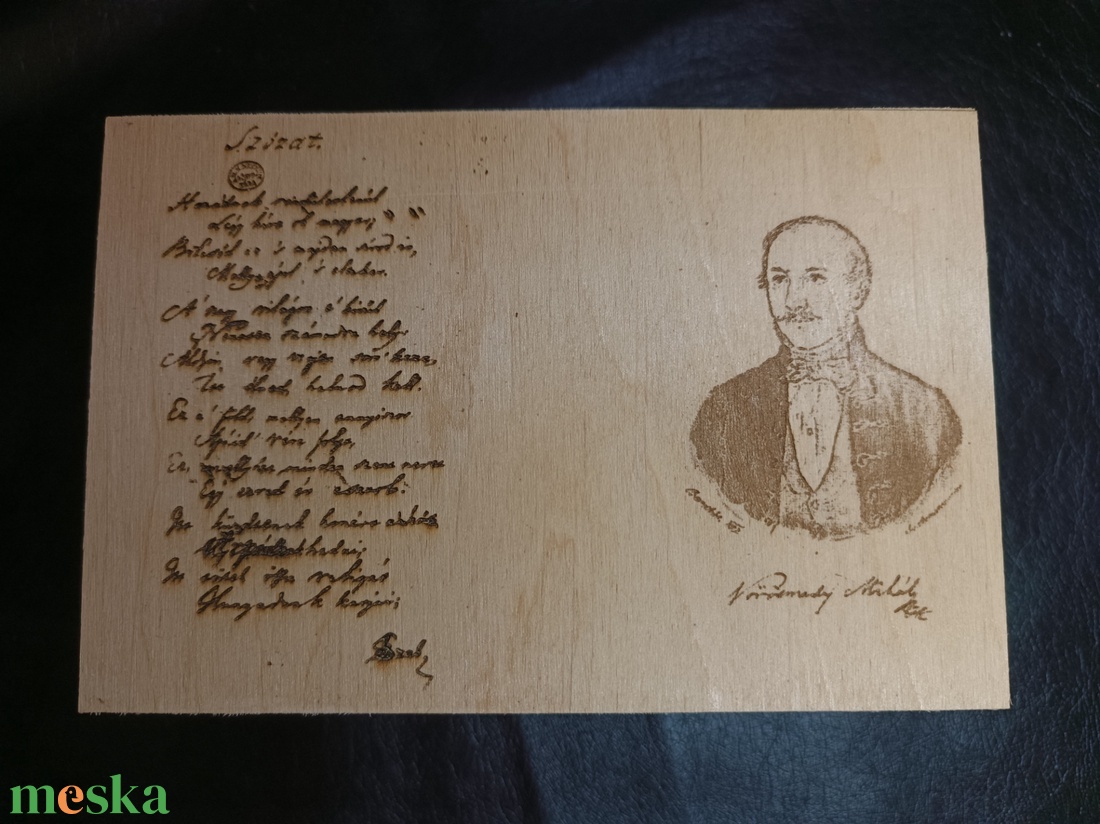 Szózat.
Hazádnak rendületlenűl
Légy híve óh magyar,
Bölcsőd ez 's majdan sírod is,
Melly ápol 's eltakar.
A' nagy világon e' kivűl
Nincsen számodra hely;
Áldjon, vagy verjen sors' keze,
Itt élned halnod kell.
Ez a' föld, mellyen annyiszor
Apáid' vére folyt,
Ez, mellyhez minden szent nevet
Egy ezred év csatolt.
Itt küzdtenek honért a hős
hadai;
Itt törtek össze rabigát
Hunyadnak karjai;
Vörösmarty Mihál
meska